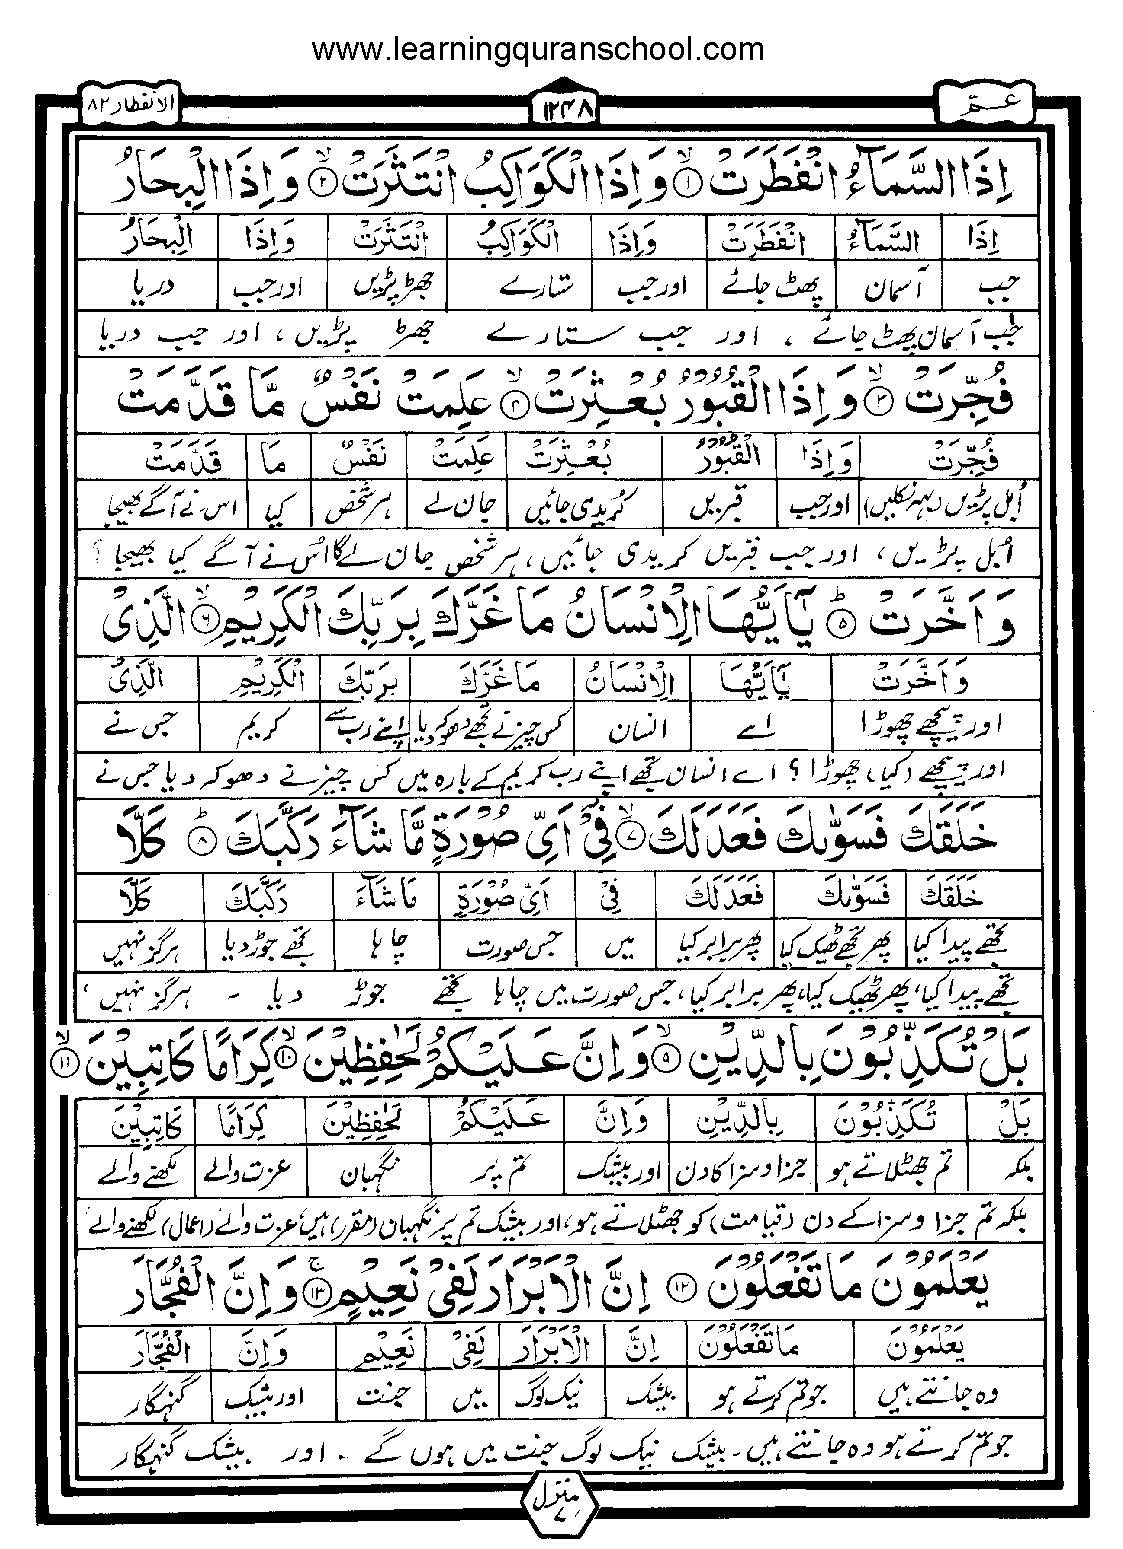 www.learningquranschool.com
عمّ ۱۲۴۸ الانفطار ۸۲
اِذَا السَّمَآءُ انْفَطَرَتْ ۙ﴿۱﴾ وَاِذَا الْكَوَاكِبُ انْتَثَرَتْ ۙ﴿۲﴾ وَاِذَا الْبِحَارُ
اِذَا السَّمَآءُ انْفَطَرَتْ وَاِذَا الْكَوَاكِبُ انْتَثَرَتْ وَاِذَا الْبِحَارُ
جب آسمان پھٹ جائے اور جب ستارے جھڑ پڑیں اور جب دریا
جب آسمان پھٹ جائے ، اور جب ستارے جھڑ پڑیں ، اور جب دریا
فُجِّرَتْ ۙ﴿۳﴾ وَاِذَا الْقُبُوْرُ بُعْثِرَتْ ۙ﴿۴﴾ عَلِمَتْ نَفْسٌ مَّا قَدَّمَتْ
فُجِّرَتْ وَاِذَا الْقُبُوْرُ بُعْثِرَتْ عَلِمَتْ نَفْسٌ مَا قَدَّمَتْ
اُبل پڑیں (بہہ نکلیں) اور جب قبریں کریدی جائیں جان لے ہر شخص کیا اس نے آگے بھیجا
اُبل پڑیں ، اور جب قبریں کریدی جائیں ، ہر شخص جان لے گا اُس نے آگے کیا بھیجا ؟
وَاَخَّرَتْ ؕ﴿۵﴾ يٰۤاَيُّهَا الْاِنْسَانُ مَا غَرَّكَ بِرَبِّكَ الْكَرِيْمِ ۙ﴿۶﴾ الَّذِيْ
وَاَخَّرَتْ يٰۤاَيُّهَا الْاِنْسَانُ مَا غَرَّكَ بِرَبِّكَ الْكَرِيْمِ الَّذِيْ
اور پیچھے چھوڑا اے انسان کس چیز نے تجھے دھوکہ دیا اپنے رب سے کریم جس نے
اور پیچھے (کیا) چھوڑا ؟ اے انسان تجھے اپنے رب کریم کے بارہ میں کس چیز نے دھوکہ دیا جس نے
خَلَقَكَ فَسَوّٰىكَ فَعَدَلَكَ ۙ﴿۷﴾ فِيْۤ اَيِّ صُوْرَةٍ مَّا شَآءَ رَكَّبَكَ ؕ﴿۸﴾ كَلَّا
خَلَقَكَ فَسَوّٰىكَ فَعَدَلَكَ فِيْ اَيِّ صُوْرَةٍ مَا شَآءَ رَكَّبَكَ كَلَّا
تجھے پیدا کیا پھر تجھے ٹھیک کیا پھر برابر کیا میں جس صورت چاہا تجھے جوڑ دیا ہرگز نہیں
تجھے پیدا کیا ، پھر ٹھیک کیا ، پھر برابر کیا ، جس صورت میں چاہا تجھے جوڑ دیا ۔ ہرگز نہیں ،
بَلْ تُكَذِّبُوْنَ بِالدِّيْنِ ۙ﴿۹﴾ وَاِنَّ عَلَيْكُمْ لَحٰفِظِيْنَ ۙ﴿۱۰﴾ كِرَامًا كَاتِبِيْنَ ۙ﴿۱۱﴾
بَلْ تُكَذِّبُوْنَ بِالدِّيْنِ وَاِنَّ عَلَيْكُمْ لَحٰفِظِيْنَ كِرَامًا كَاتِبِيْنَ
بلکہ تم جھٹلاتے ہو جزا و سزا کا دن اور بیشک تم پر نگہبان عزت والے لکھنے والے
بلکہ تم جزا و سزا کے دن (قیامت) کو جھٹلاتے ہو ، اور بیشک تم پر نگہبان (مقرر) ہیں ، عزت والے (اعمال) لکھنے والے ،
يَعْلَمُوْنَ مَا تَفْعَلُوْنَ ﴿۱۲﴾ اِنَّ الْاَبْرَارَ لَفِيْ نَعِيْمٍ ۚ﴿۱۳﴾ وَاِنَّ الْفُجَّارَ
يَعْلَمُوْنَ مَا تَفْعَلُوْنَ اِنَّ الْاَبْرَارَ لَفِيْ نَعِيْمٍ وَاِنَّ الْفُجَّارَ
وہ جانتے ہیں جو تم کرتے ہو بیشک نیک لوگ میں جنت اور بیشک گنہگار
جو تم کرتے ہو وہ جانتے ہیں ۔ بیشک نیک لوگ جنت میں ہوں گے ۔ اور بیشک گنہگار
منزل ۷